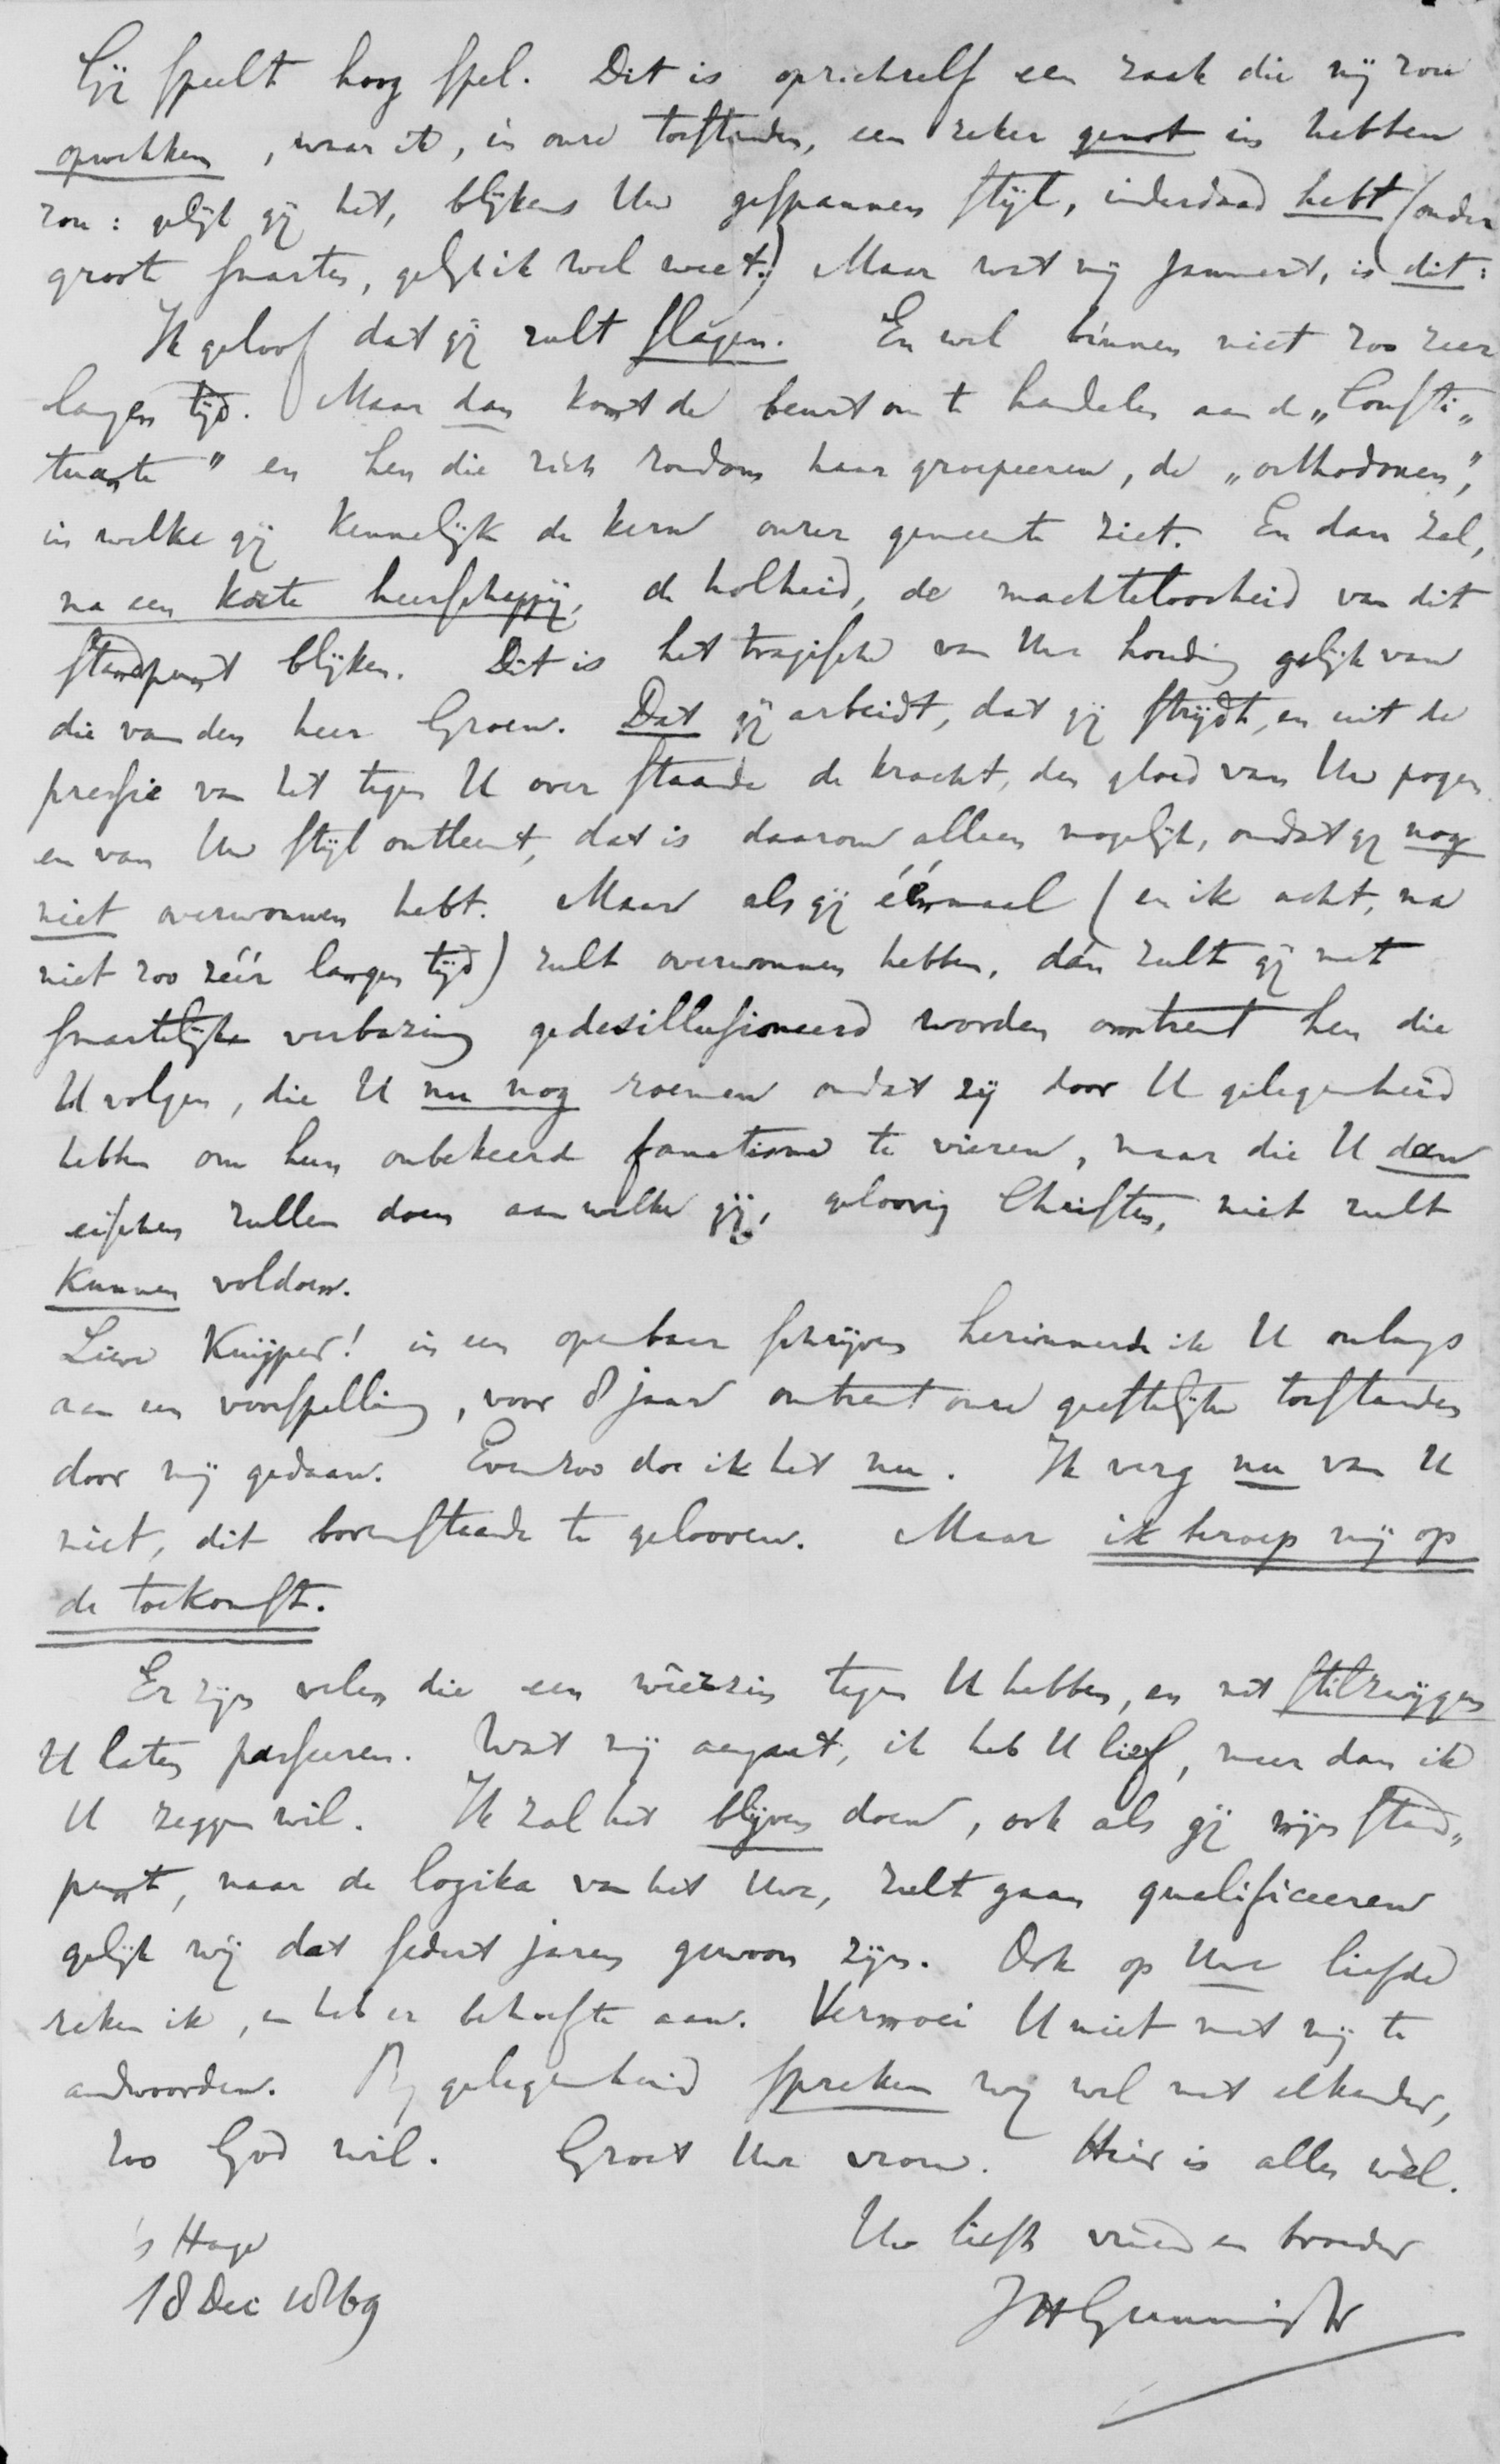 Gij speelt hoog spel. Dit is op zichzelf een zaak die mij zou
opwekken, waar ik, in onze toestanden, een zeker genot in hebben
zou: gelijk gij het, blijkens Uw gespannen stijl, inderdaad hebt (onder
groote smarten, gelijk ik wel weet.) Maar wat mij jammert, is dit:
Ik geloof dat gij zult slagen. En wel binnen niet zoo zeer
langen tijd. Maar dan komt de beurt om te handelen aan de „Consti„
tuante" en hen die zich rondom haar groepeeren, de „orthodoxen",
in welke gij kennelijk de kern onzer gemeente ziet. En dan zal,
na een korte heerschappij, de holheid, de machteloosheid van dit
standpunt blijken. Dit is het tragische van Uwe houding gelijk van
die van den heer Groen. Dat gij arbeidt, dat gij strijdt, en uit de
pressie van het tegen U over staande de kracht, den gloed van Uw pogen
en van Uw stijl ontleent, dat is daarom alleen mogelijk, omdat gij nog
niet overwonnen hebt. Maar als gij éénmaal (en ik acht, na
niet zoo zéér langen tijd) zult overwonnen hebben, dán zult gij met
smartelijke verbazing gedesillusioneerd worden omtrent hen die
U volgen, die U nu nog roemen omdat zij door U gelegenheid
hebben om hun onbekeerd fanatisme te vieren, maar die U dan
eischen zullen doen aan welke gij, geloovig Christen, niet zult
kunnen voldoen.
Lieve Kuijper! in een openbaar schrijven herinnerde ik U onlangs
aan een voorspelling, voor 8 jaar omtrent onze geestelijke toestanden
door mij gedaan. Evenzoo doe ik het nu. Ik verg nu van U
niet, dit bovenstaande te gelooven. Maar ik beroep mij op
de toekomst.
Er zijn velen die een wêerzin tegen U hebben, en met stilzwijgen
U laten passeeren. Wat mij aangaat, ik heb U lief, meer dan ik
U zeggen wil. Ik zal het blijven doen, ook als gij mijn stand„
punt, naar de logika van het Uwe, zult gaan qualificeeren
gelijk wij dat sedert jaren gewoon zijn. Ook op Uwe liefde
reken ik, en heb er behoefte aan. Vermoei U niet met mij te
andwoorden. Bij gelegenheid spreken wij wel met elkander,
zoo God wil. Groet Uwe vrouw. Hier is alles wèl.
Uw liefh vriend en broeder
's Hage
18 Dec 1869
JHGunning Jr